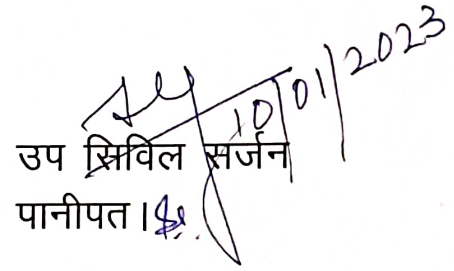 10/01/2023
उप सिविल सर्जन
पानीपत।